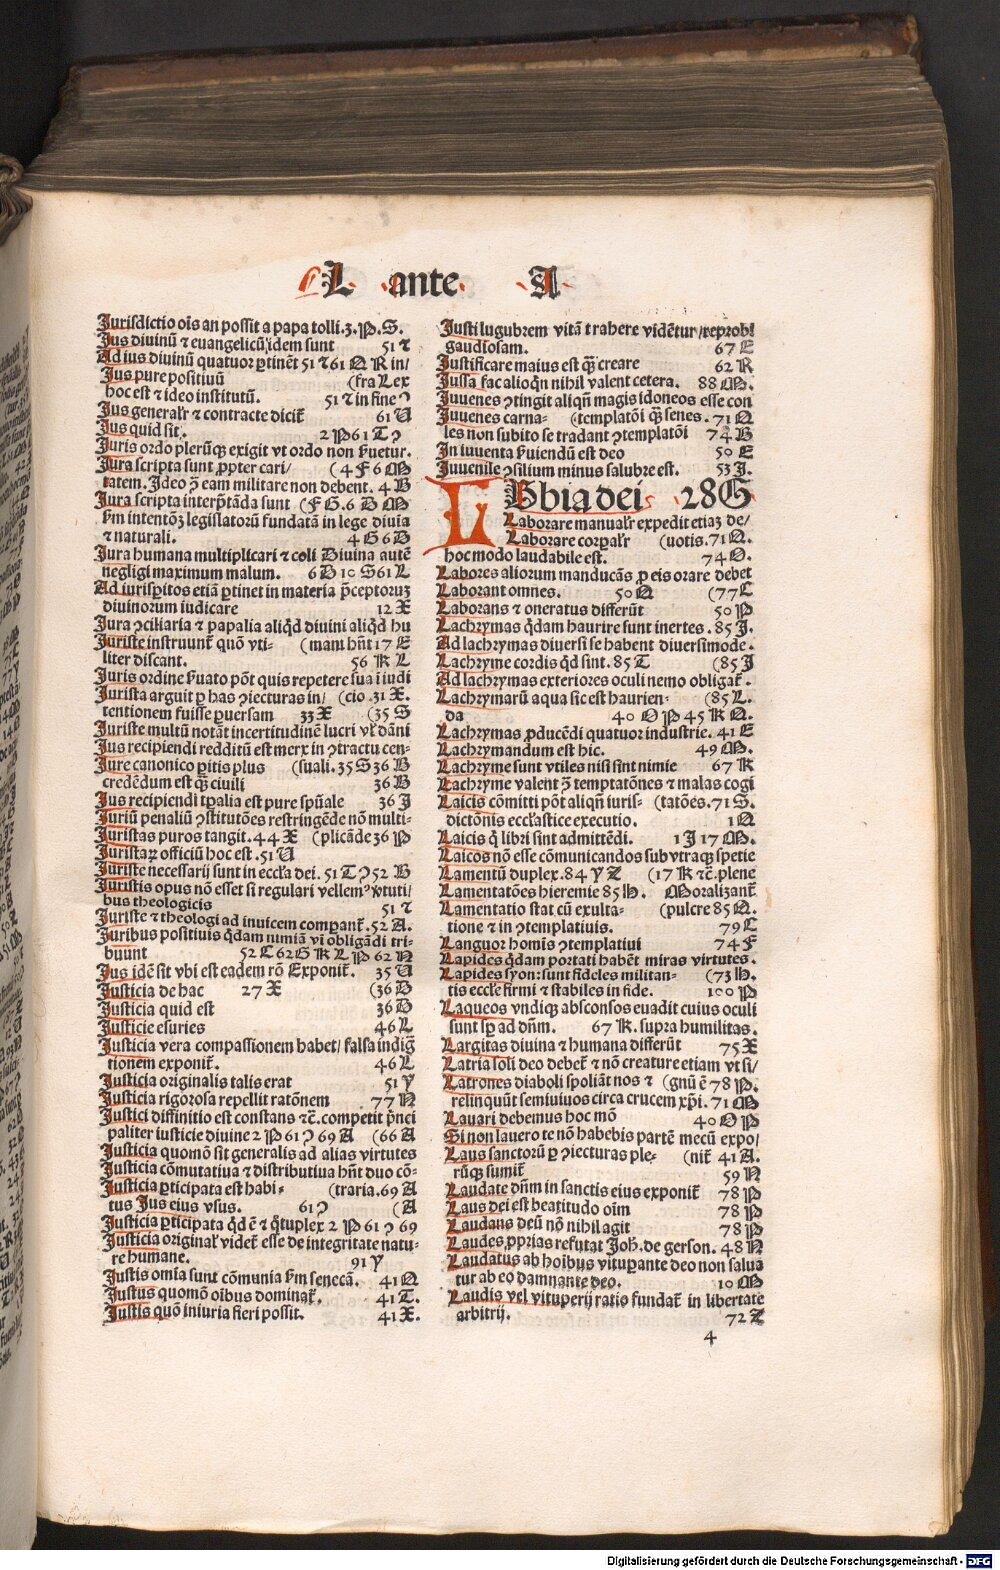 L ante A
Jurisdictio oīs an possit a papa tolli.3.P.S.
Jus diuinū ⁊ euangelicū idem sunt 51 ⁊
Ad ius diuinū quatuor ꝑtinēt 51 ⁊ 61 Q R in/
Jus pure positiuū (fra Lex
hoc est ⁊ ideo institutū. 51 ⁊ in fine ꝯ
Jus generalr̄ ⁊ contracte dicit̄ 61 U
Jus quid sit. 2 P 61 T ꝯ
Juris ordo plerūqꝫ exigit vt ordo non ẜuetur.
Jura scripta sunt ꝓpter cari/ (4 F 6 M
tatem. Ideo ꝯ̄ eam militare non debent. 4 B
Jura scripta interp̄tāda sunt (F G. 6 D M
ẜm intentōꝫ legislatorū fundatā in lege diuia
⁊ naturali. 4 G 6 D
Jura humana multiplicari ⁊ coli Diuina autē
negligi maximum malum. 6 D 10 S 61 L
Ad iurisꝑitos etiā ꝑtinet in materia p̄ceptoruꝫ
diuinorum iudicare 12 X
Jura ꝯciliaria ⁊ papalia aliqd diuini aliqd hu
Juriste instruunt̄ quō vti- (mani hn̄t 17 E
liter discant. 56 K L
Juris ordine ẜuato pōt quis repetere sua ī iudi
Jurista arguit ꝑ has ꝯiecturas in/ (cio.31 X.
tentionem fuisse ꝑuersam 33 X (35 S
Juriste multū notāt incertitudinē lucri vl̄ dāni
Jus recipiendi redditū est merx in ꝯtractu cen-
Jure canonico ꝑitis plus (suali. 35 S 36 B
credēdum est qꝫ̄ ciuili 36 B
Jus recipiendi tꝑalia est pure spūale 36 J
Juriū penaliū ꝯstitutōes restringēde nō multi-
Juristas puros tangit. 44 X (plicāde 36 P
Juristaꝝ officiū hoc est. 51 U
Juriste necessarij sunt in eccl̄a dei. 51 T ꝯ 52 B
Juristis opus nō esset si regulari vellemꝰ ꝟtuti/
bus theologicis 51 ⁊
Juriste ⁊ theologi ad inuicem comparant̄. 52 A.
Juribus positiuis q̄dam nimiā vī obligādi tri-
buunt 52 C 62 G K L P 62 N
Jus idē sit vbi est eadem rō Exponit̄. 35 U
Justicia de hac 27 X (36 D
Justicia quid est 36 D
Justicie esuries 46 L
Justicia vera compassionem habet/ falsa indig
tionem exponit̄. 46 L
Justicia originalis talis erat 51 Y
Justicia rigorosa repellit ratōnem 77 H
Justici diffinitio est constans ⁊c̄. competit p̄nci
paliter iusticie diuine 2 P 61 ꝯ 69 A (66 A
Justicia quomō sit generalis ad alias virtutes
Justicia cōmutatiua ⁊ distributiua hn̄t duo cō-
Justicia ꝑticipata est habi- (traria. 69 A
tus Jus eius vsus. 61 ꝯ (A
Justicia ꝑticipata qd ē ⁊ q̄tuplex 2 P 61 ꝯ 69
Justicia originał videt̄ esse de integritate natu-
re humane. 91 Y
Justis omīa sunt cōmunia ẜm senecā. 41 Q
Justus quomō oībus dominat̄. 41 T.
Justis quō iniuria fieri possit. 41 X.
Justi lugubrem vitā trahere vidētur/reprobi
gaudiosam. 67 E
Justificare maius est qꝫ̄ creare 62 R
Jussa fac alioqn nihil valent cetera. 88 M.
Juuenes ꝯtingit aliqn̄ magis idoneos esse con
Juuenes carna- (templatōi qꝫ̄ senes. 71 Q
les non subito se tradant ꝯtemplatōi 74 B
In iuuenta ẜuiendū est deo 50 E
Juuenile ꝯsilium minus salubre est. 53 J.
LBbia dei 28 G
Laborare manualr̄ expedit etiaꝫ de/
Laborare corꝑalr̄ (uotis. 71 Q.
hoc modo laudabile est. 74 O.
Labores aliorum manducās ꝓ eis orare debet
Laborant omnes. 50 Q (77 C
Laborans ⁊ oneratus differūt 50 P
Lachrymas q̄dam haurire sunt inertes. 85 J.
Ad lachrymas diuersi se habent diuersimode.
Lachryme cordis qd sint. 85 T (85 J
Ad lachrymas exteriores oculi nemo obligat̄.
Lachrymarū aqua sic est haurien- (85 L.
da 40 O P 45 K Q.
Lachrymas ꝓducēdi quatuor industrie. 41 E
Lachrymandum est hic. 49 M.
Lachryme sunt vtiles nisi sint nimie 67 K
Lachryme valent ꝯ̄ temptatōnes ⁊ malas cogi
Laicis cōmitti pōt aliqn̄ iuris- (tatōes. 71 S.
dictōnis eccl̄astice executio. 1 Q
Laicis q̄ libri sint admittēdi. 1 J 17 M.
Laicos nō esse cōmunicandos sub vtraqꝫ spetie
Lamentū duplex. 84 Y Z (17 K ⁊c̄. plene
Lamentatōes hieremie 85 H. Moralizant̄.
Lamentatio stat cū exulta- (pulcre 85 Q.
tione ⁊ in ꝯtemplatiuis. 79 C
Languor homīs ꝯtemplatiui 74 F
Lapides q̄dam portati habēt miras virtutes.
Lapides syon: sunt fideles militan- (73 H.
tis eccl̄e firmi ⁊ stabiles in fide. 100 P
Laqueos vndiqꝫ absconsos euadit cuius oculi
sunt sp̄ ad dn̄m. 67 K. supra humilitas.
Largitas diuina ⁊ humana differūt 75 X
Latria soli deo debet̄ ⁊ nō creature etiam vt si/
Latrones diaboli spoliāt nos ⁊ (gnū ē 78 P.
relinquūt semiuiuos circa crucem xp̄i. 71 M
Lauari debemus hoc mō 40 O P
Si non lauero te nō habebis partē mecū expo/
Laus sanctorū ꝑ ꝯiecturas ple- (nit̄ 41 A.
rūqꝫ sumit̄ 59 N
Laudate dn̄m in sanctis eius exponit̄ 78 P
Laus dei est beatitudo oīm 78 P
Laudans deū nō nihil agit 78 P
Laudes ꝓprias refutat Joh̄. de gerson. 48 N
Laudatus ab hoībus vituꝑante deo non salua
tur ab eo damnante deo. 10 M
Laudis vel vituperij ratis fundat̄ in libertate
arbitrij. 72 Z
4
Digitalisierung gefördert durch die Deutsche Forschungsgemeinschaft - DFG